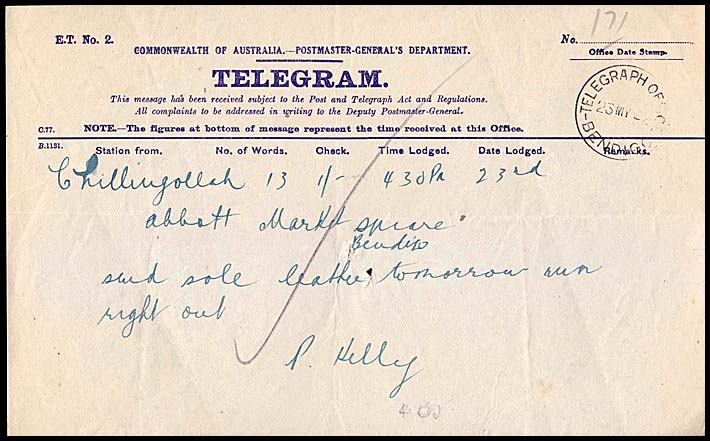 E.T. No. 2.
COMMONWEALTH OF AUSTRALIA.—POSTMASTER-GENERAL'S DEPARTMENT.
No. 171
Office Date Stamp.
TELEGRAM.
This message has been received subject to the Post and Telegraph Act and Regulations.
All complaints to be addressed in writing to the Deputy Postmaster-General.
TELEGRAPH OF
23 MY
BENDIGO
C.77. NOTE.—The figures at bottom of message represent the time received at this Office.
B.1131. Station from. No. of Words. Check. Time Lodged. Date Lodged. Remarks.
Chillingollah 13 1/- 430PM 23rd
abbott Market square
Bendigo
send sole leather tomorrow run
right out
P. Kelly